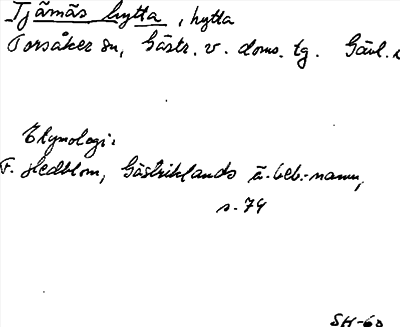 Tjärnäs hytta, hytta
Torsåker sn, Gästr. v. doms. tg. Gävl.
Etymologi:
F. Hedblom, Gästriklands ä. beb.-namn,
s. 74
SH-60